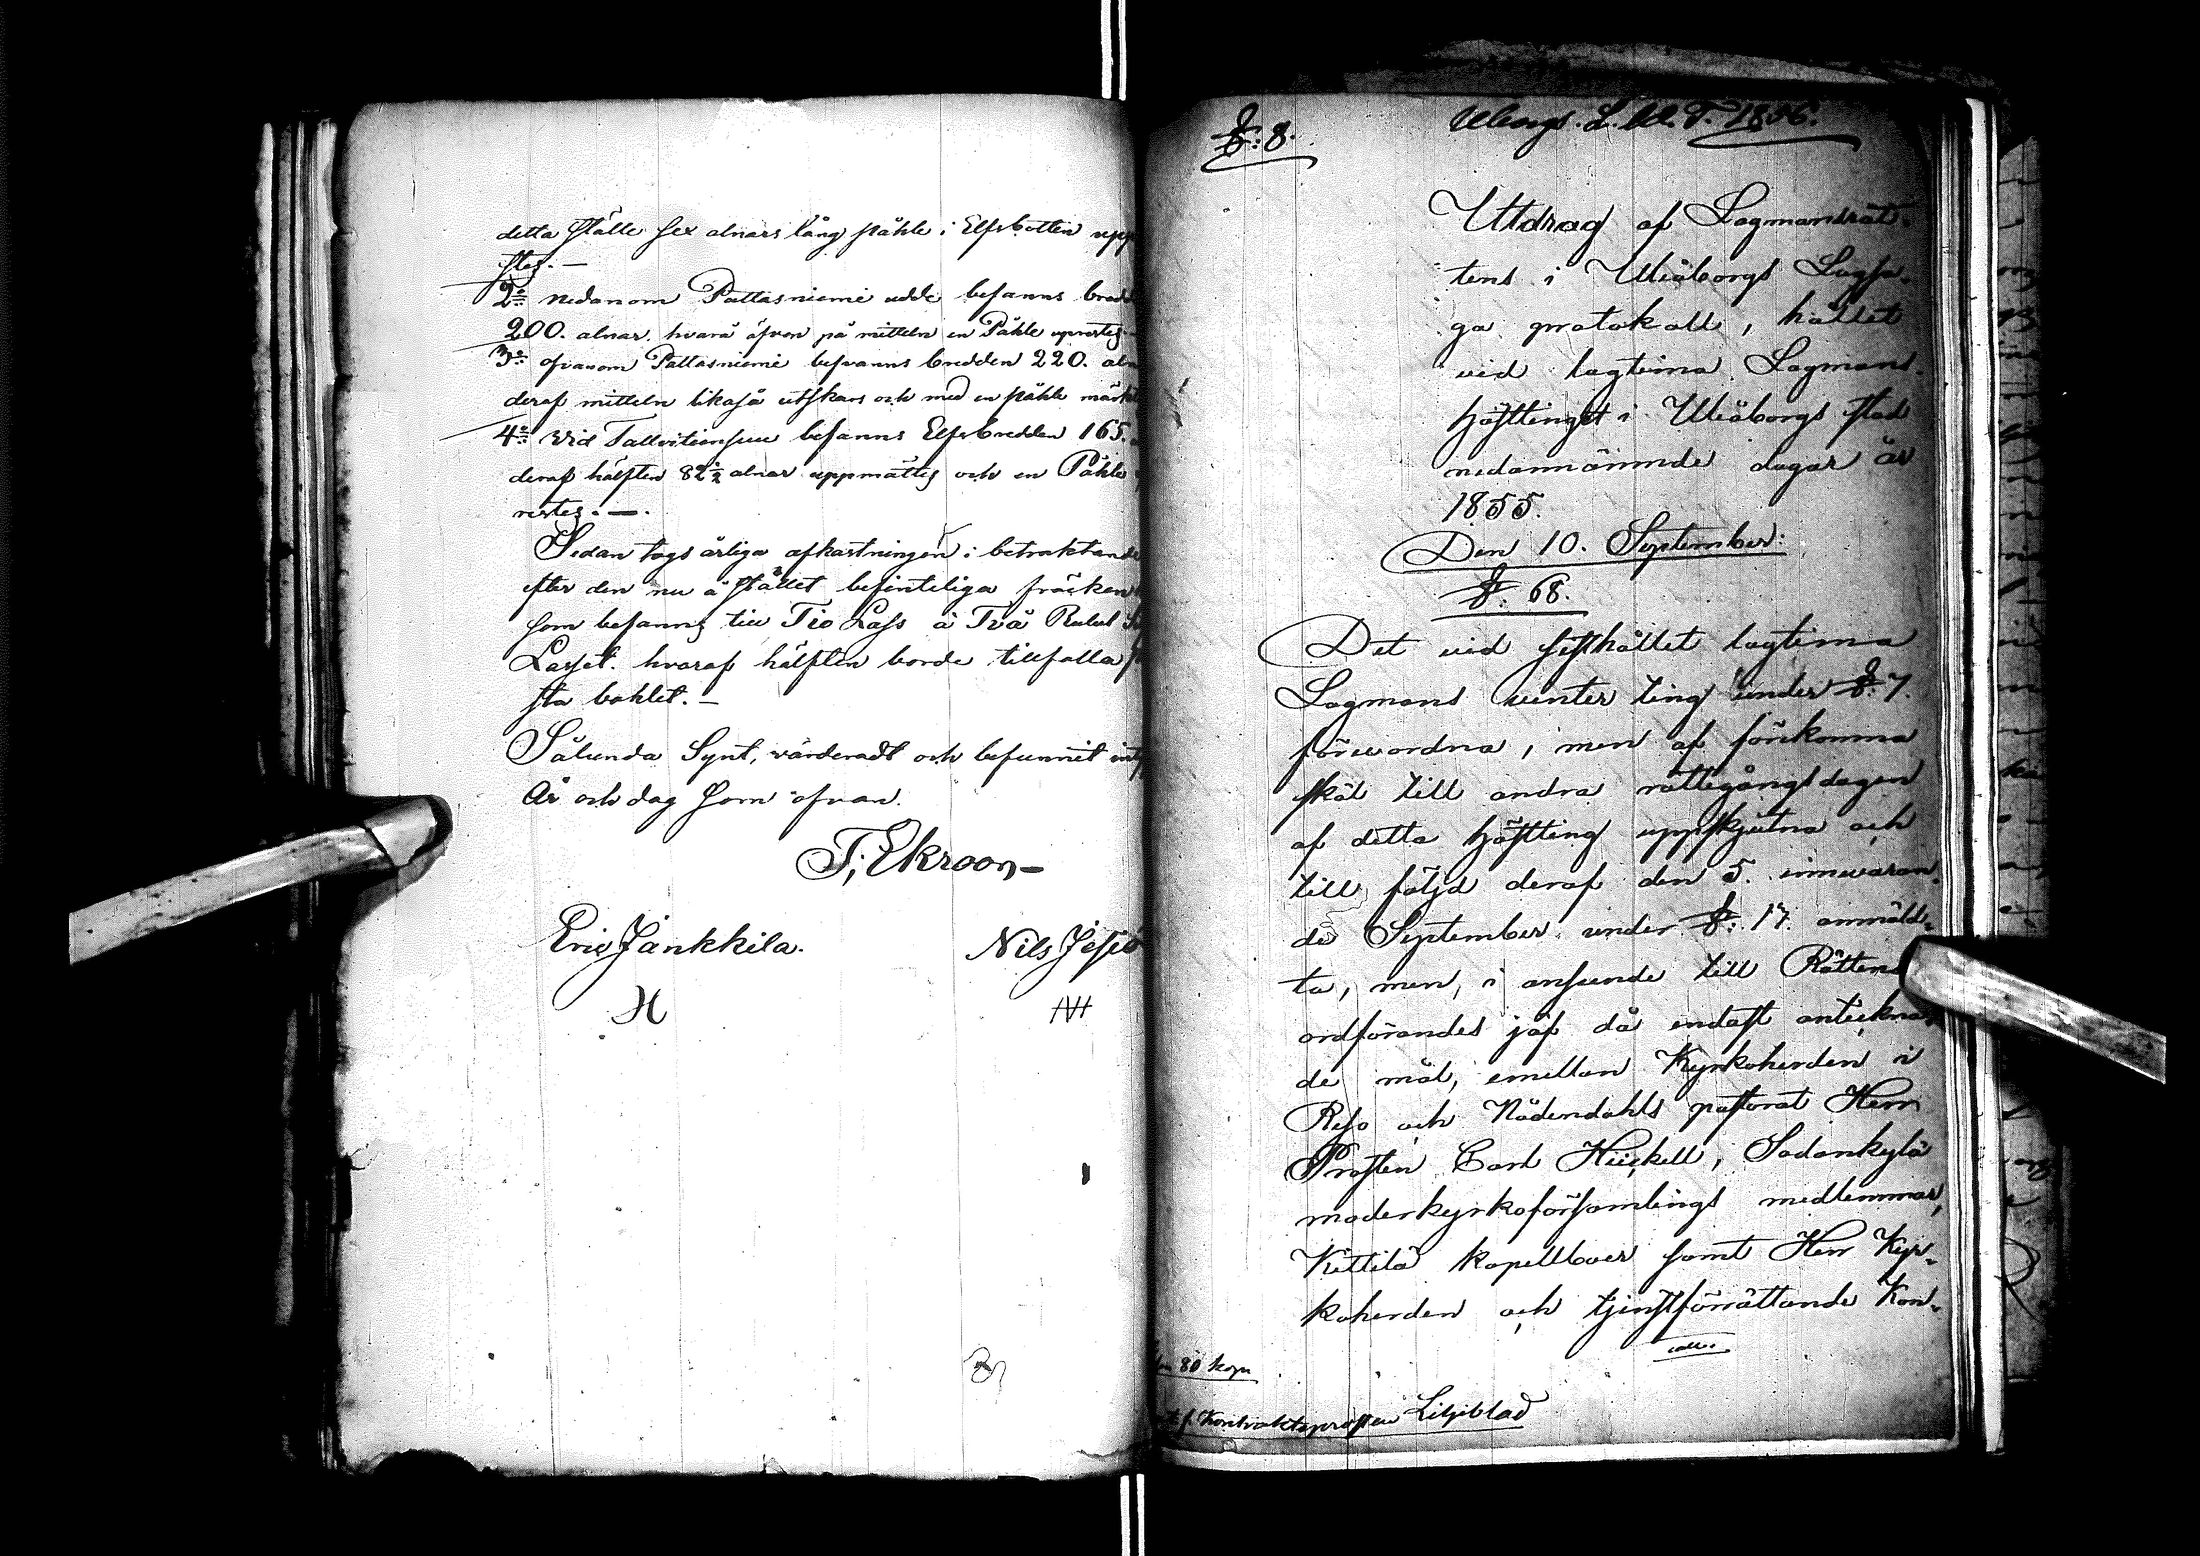 detta ställe sex alnars lång påhle i Elfsbotten upp
stes. —
2:o nedanom Pattasniemi udde befanns bred
200. alnar. hvarå äfven på mitteln en Påhle uprestes. —
3:o ofvanom Pattasniemi befvanns bredden 220. aln
deraf mitteln likaså utskars och med en påhle märkt
4:o vid Tallvitiensuu befanns Elfsbredden 165.
deraf hälften 82½ alnar uppmättes och en Påhle
restes. —.
Sedan togs årliga afkastningen i betraktande
efter den nu å stället befinteliga fräken
som befanns till Tio Lass à Två Rubel
Lasset. hvaraf hälften borde tillfalla
sta bohlet. —
Sålunda Synt, värderadt och befunnit
År och dag som ofvan.
T, Ekroon —
Eric Jankkila.
Nils Jesiö
§: 8.
Uleborgs. L. M. T. 1856.
Utdrag af Lagmansrät-
tens i Uleåborgs Lagsa-
ga protokoll, hållet
vid lagtima Lagmans-
hösttinget i Uleåborgs stad
nedannämnde dagar år
1855.
Den 10. September:
§: 68.
Det vid sisthållet lagtima
Lagmans vinter ting under §: 7.
förevordna, men af förekomma
skäl till andra rättegångsdagen
af detta höstting uppskjutna och
till följd deraf den 5. innevaran-
de September under §: 17. anmäld-
ta, men, i anseende till Rättens
ordförandes jäf då endast anteckna-
de mål, emellan Kyrkoherden i
Reso och Nådendahls pastorat Herr
Prosten Carl Heickell, Sodankylä
moderkyrkoförsamlings medlemmar,
Kittilä kapellboer samt Herr Kyr-
koherden och tjenstförrättande Kon-
80 kop
f. Kontraktsprosten Liljeblad